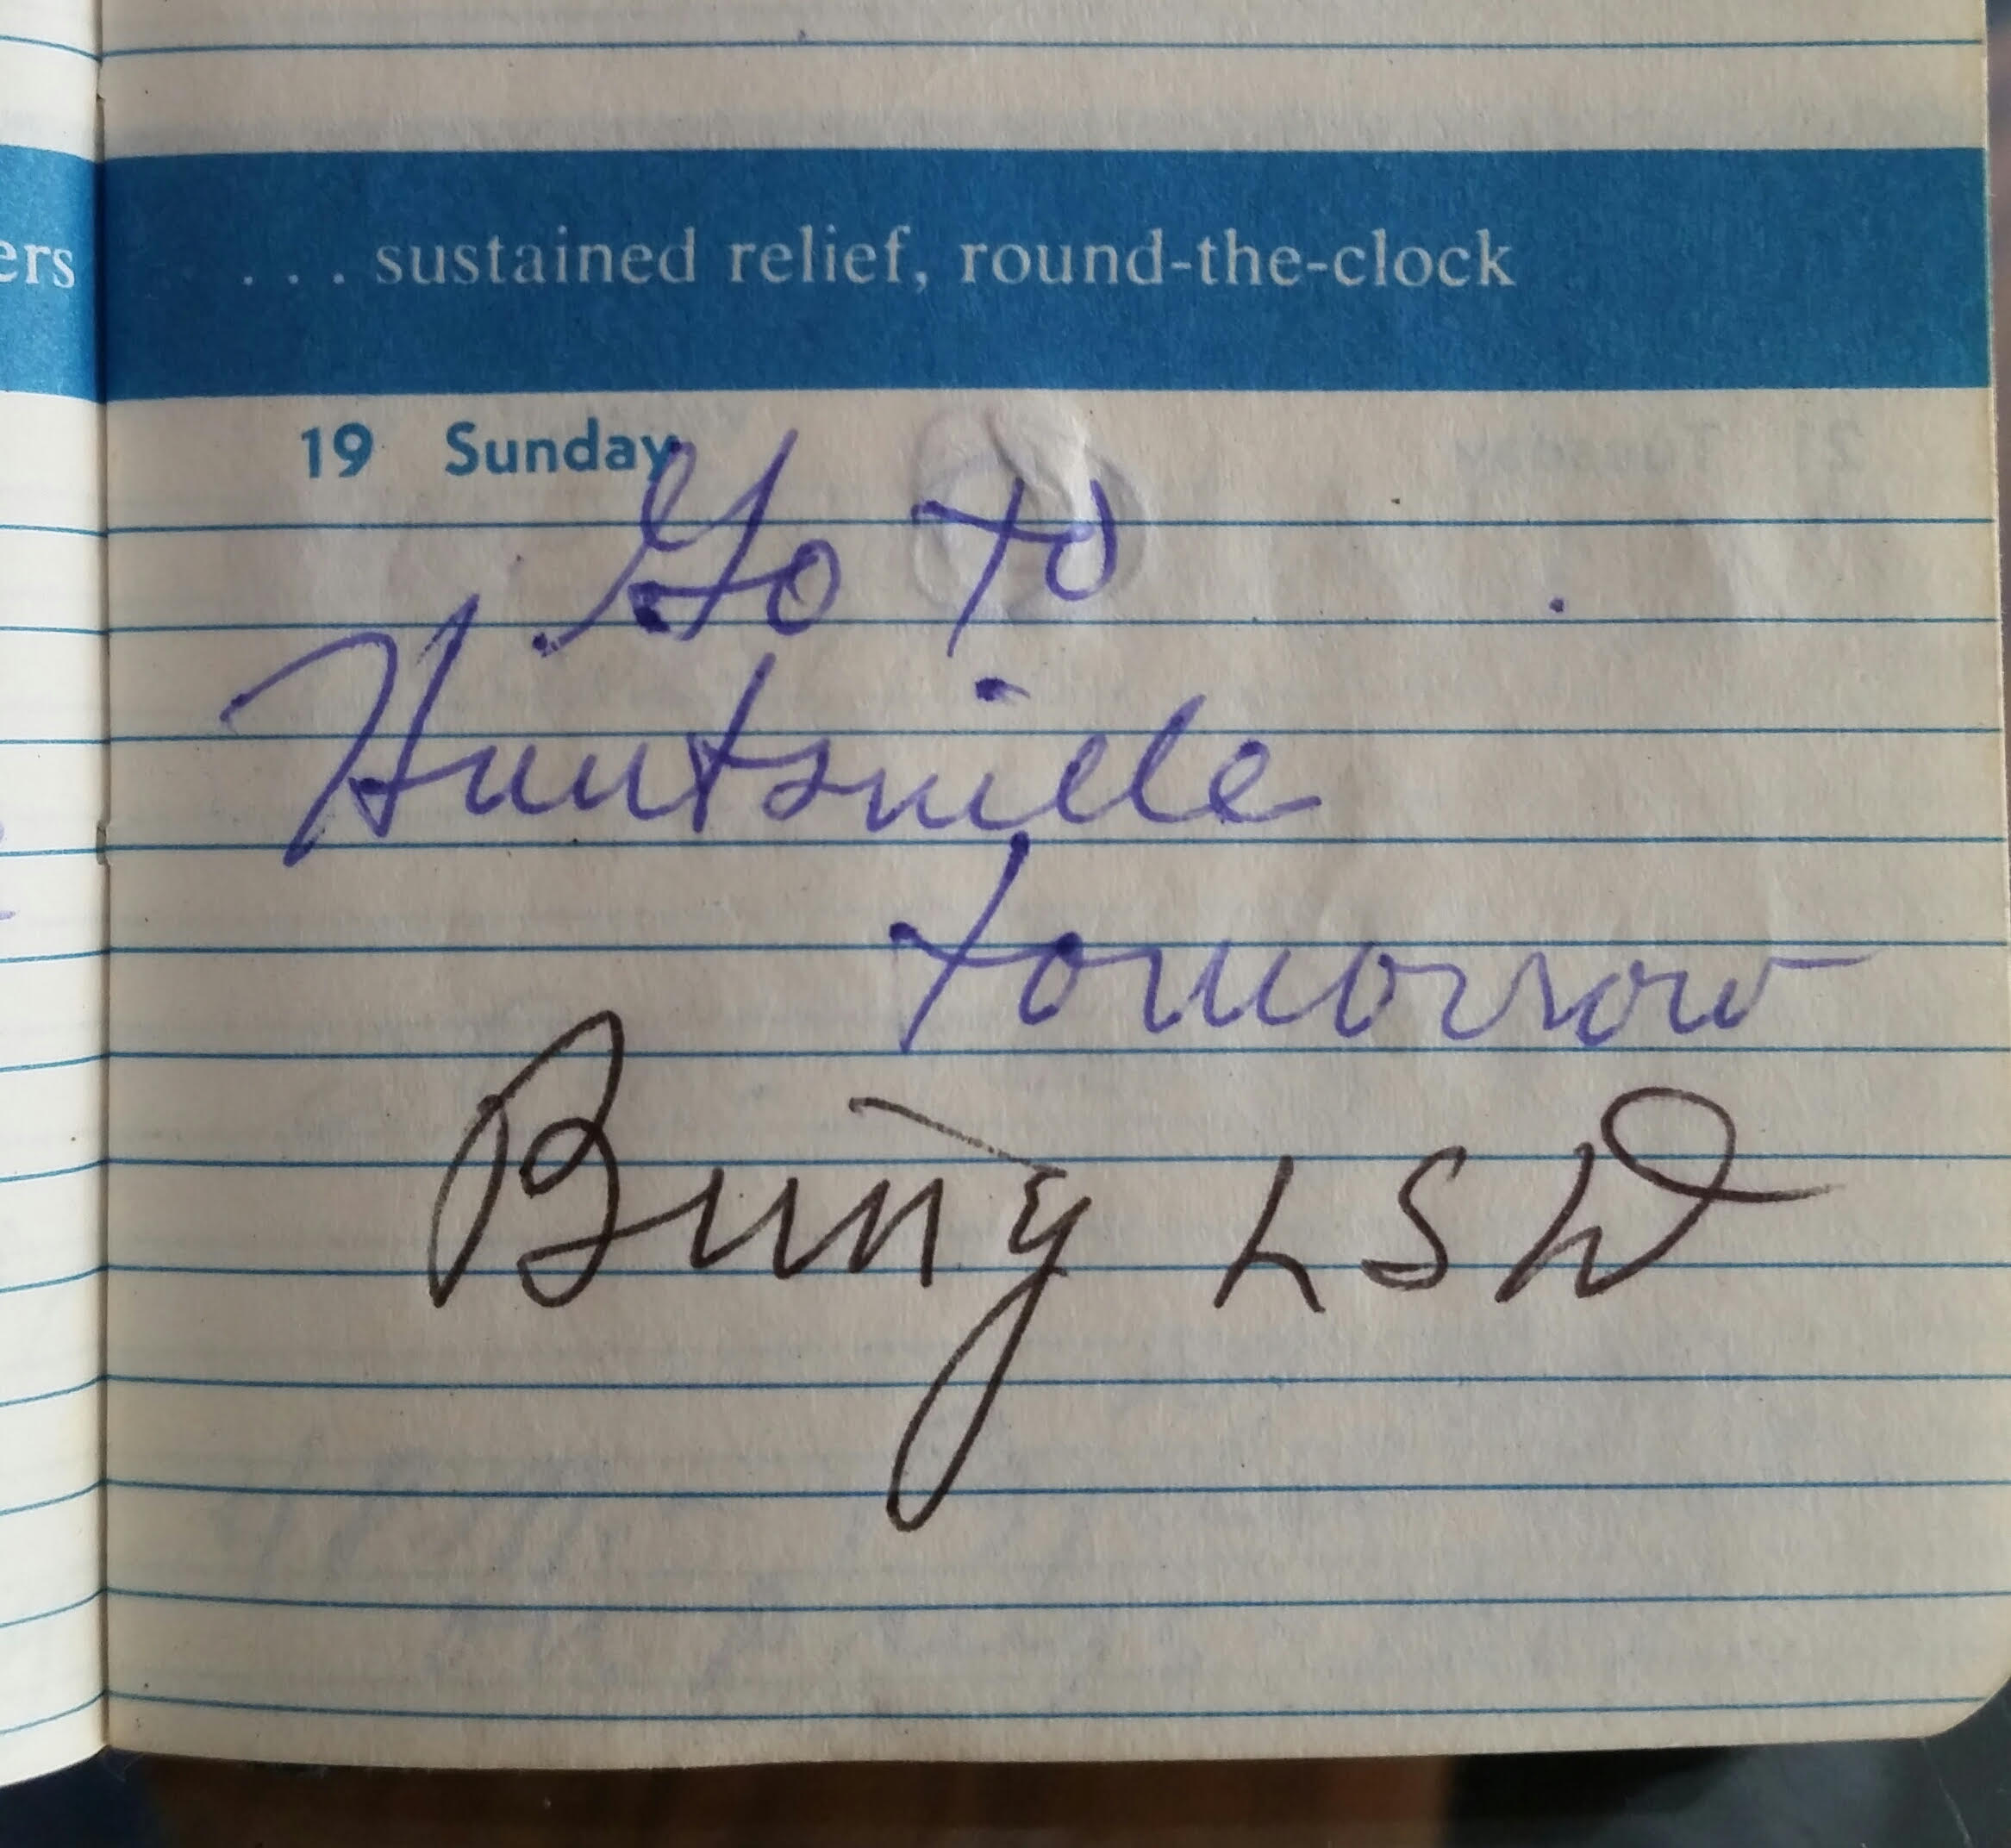 ers
... sustained relief, round-the-clock
19 Sunday
Go to
Huntsville
tomorrow
LSD